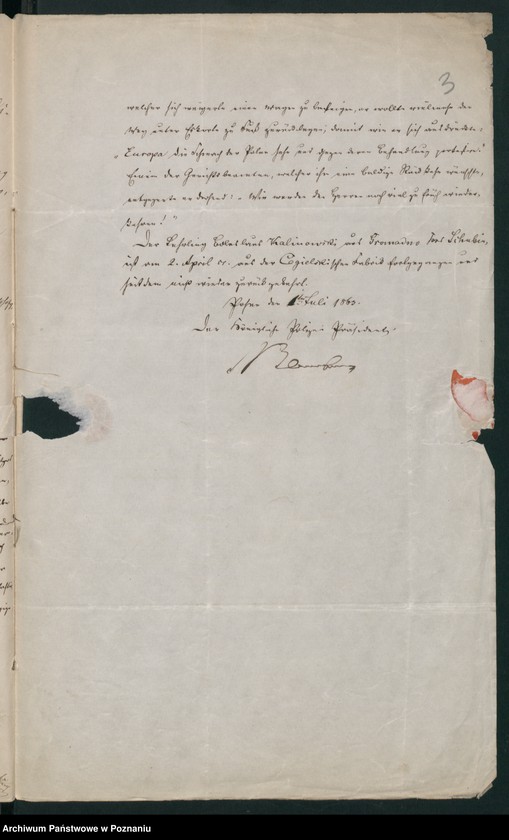 3
welcher sich weigerte einen Wagen zu besteigen, er wollte vielmehr den
Weg unter Eskorte zu Fuß zurücklegen, damit wie er sich ausdrückte,
„Europa die Schmach der Polen sehe und gegen deren Behandlung protestire."
Einem der Gerichtsbeamten, welcher ihm eine baldige Rückkehr wünschte,
entgegnete er drohend: „Wir werden den Herren noch viel zu früh wieder
kehren!"
Der Lehrling Boleslaus Kalinowski aus Gromadno Kreis Schubin,
ist am 2. April cr. aus der Cegielskischen Fabrik fortgegangen und
seitdem nicht wieder zurückgekehrt.
Posen den 1ten Juli 1863.
Der Königliche Polizei Präsident
Archiwum Państwowe w Poznaniu